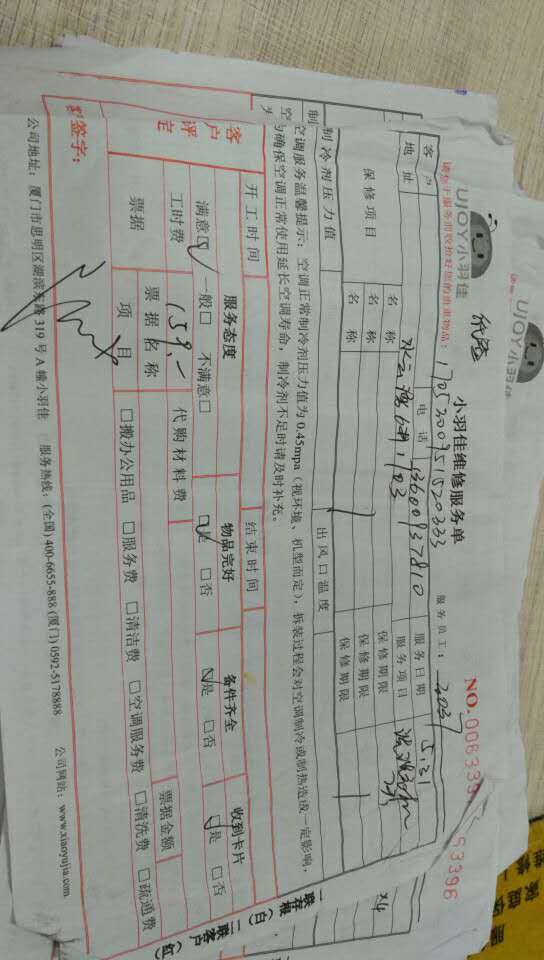 UJOY小羽佳
小羽佳维修服务单
NO. 008333
63396
1705300951520333
服务员工：
2037
客户
电话
13600937810
服务日期
5.31
地址
1703
服务项目
保修项目
名称
保修期限
名称
保修期限
名称
保修期限
制冷剂压力值
出风口温度
空调服务温馨提示：空调正常制冷剂压力值为0.45mpa（视环境、机型而定），拆装过程会对空调制冷或制热造成一定影响，
为确保空调正常使用延长空调寿命，制冷剂不足时请及时补充。
开工时间
结束时间
客户评定
服务态度
物品完好
备件齐全
收到卡片
满意☑ 一般□ 不满意□
☑是 □否
☑是 □否
☑是 □否
工时费
159.-
代购材料费
票据
票据名称
票据金额
项目
□搬办公用品 □服务费 □清洁费 □空调服务费 □清洗费 □疏通费
签字：
公司地址：厦门市思明区湖滨东路319号A幢小羽佳 服务热线：(全国) 400-6655-888 (厦门) 0592-5178888 公司网站：www.xiaoyujia.com
一联存根（白）一联客户（红）